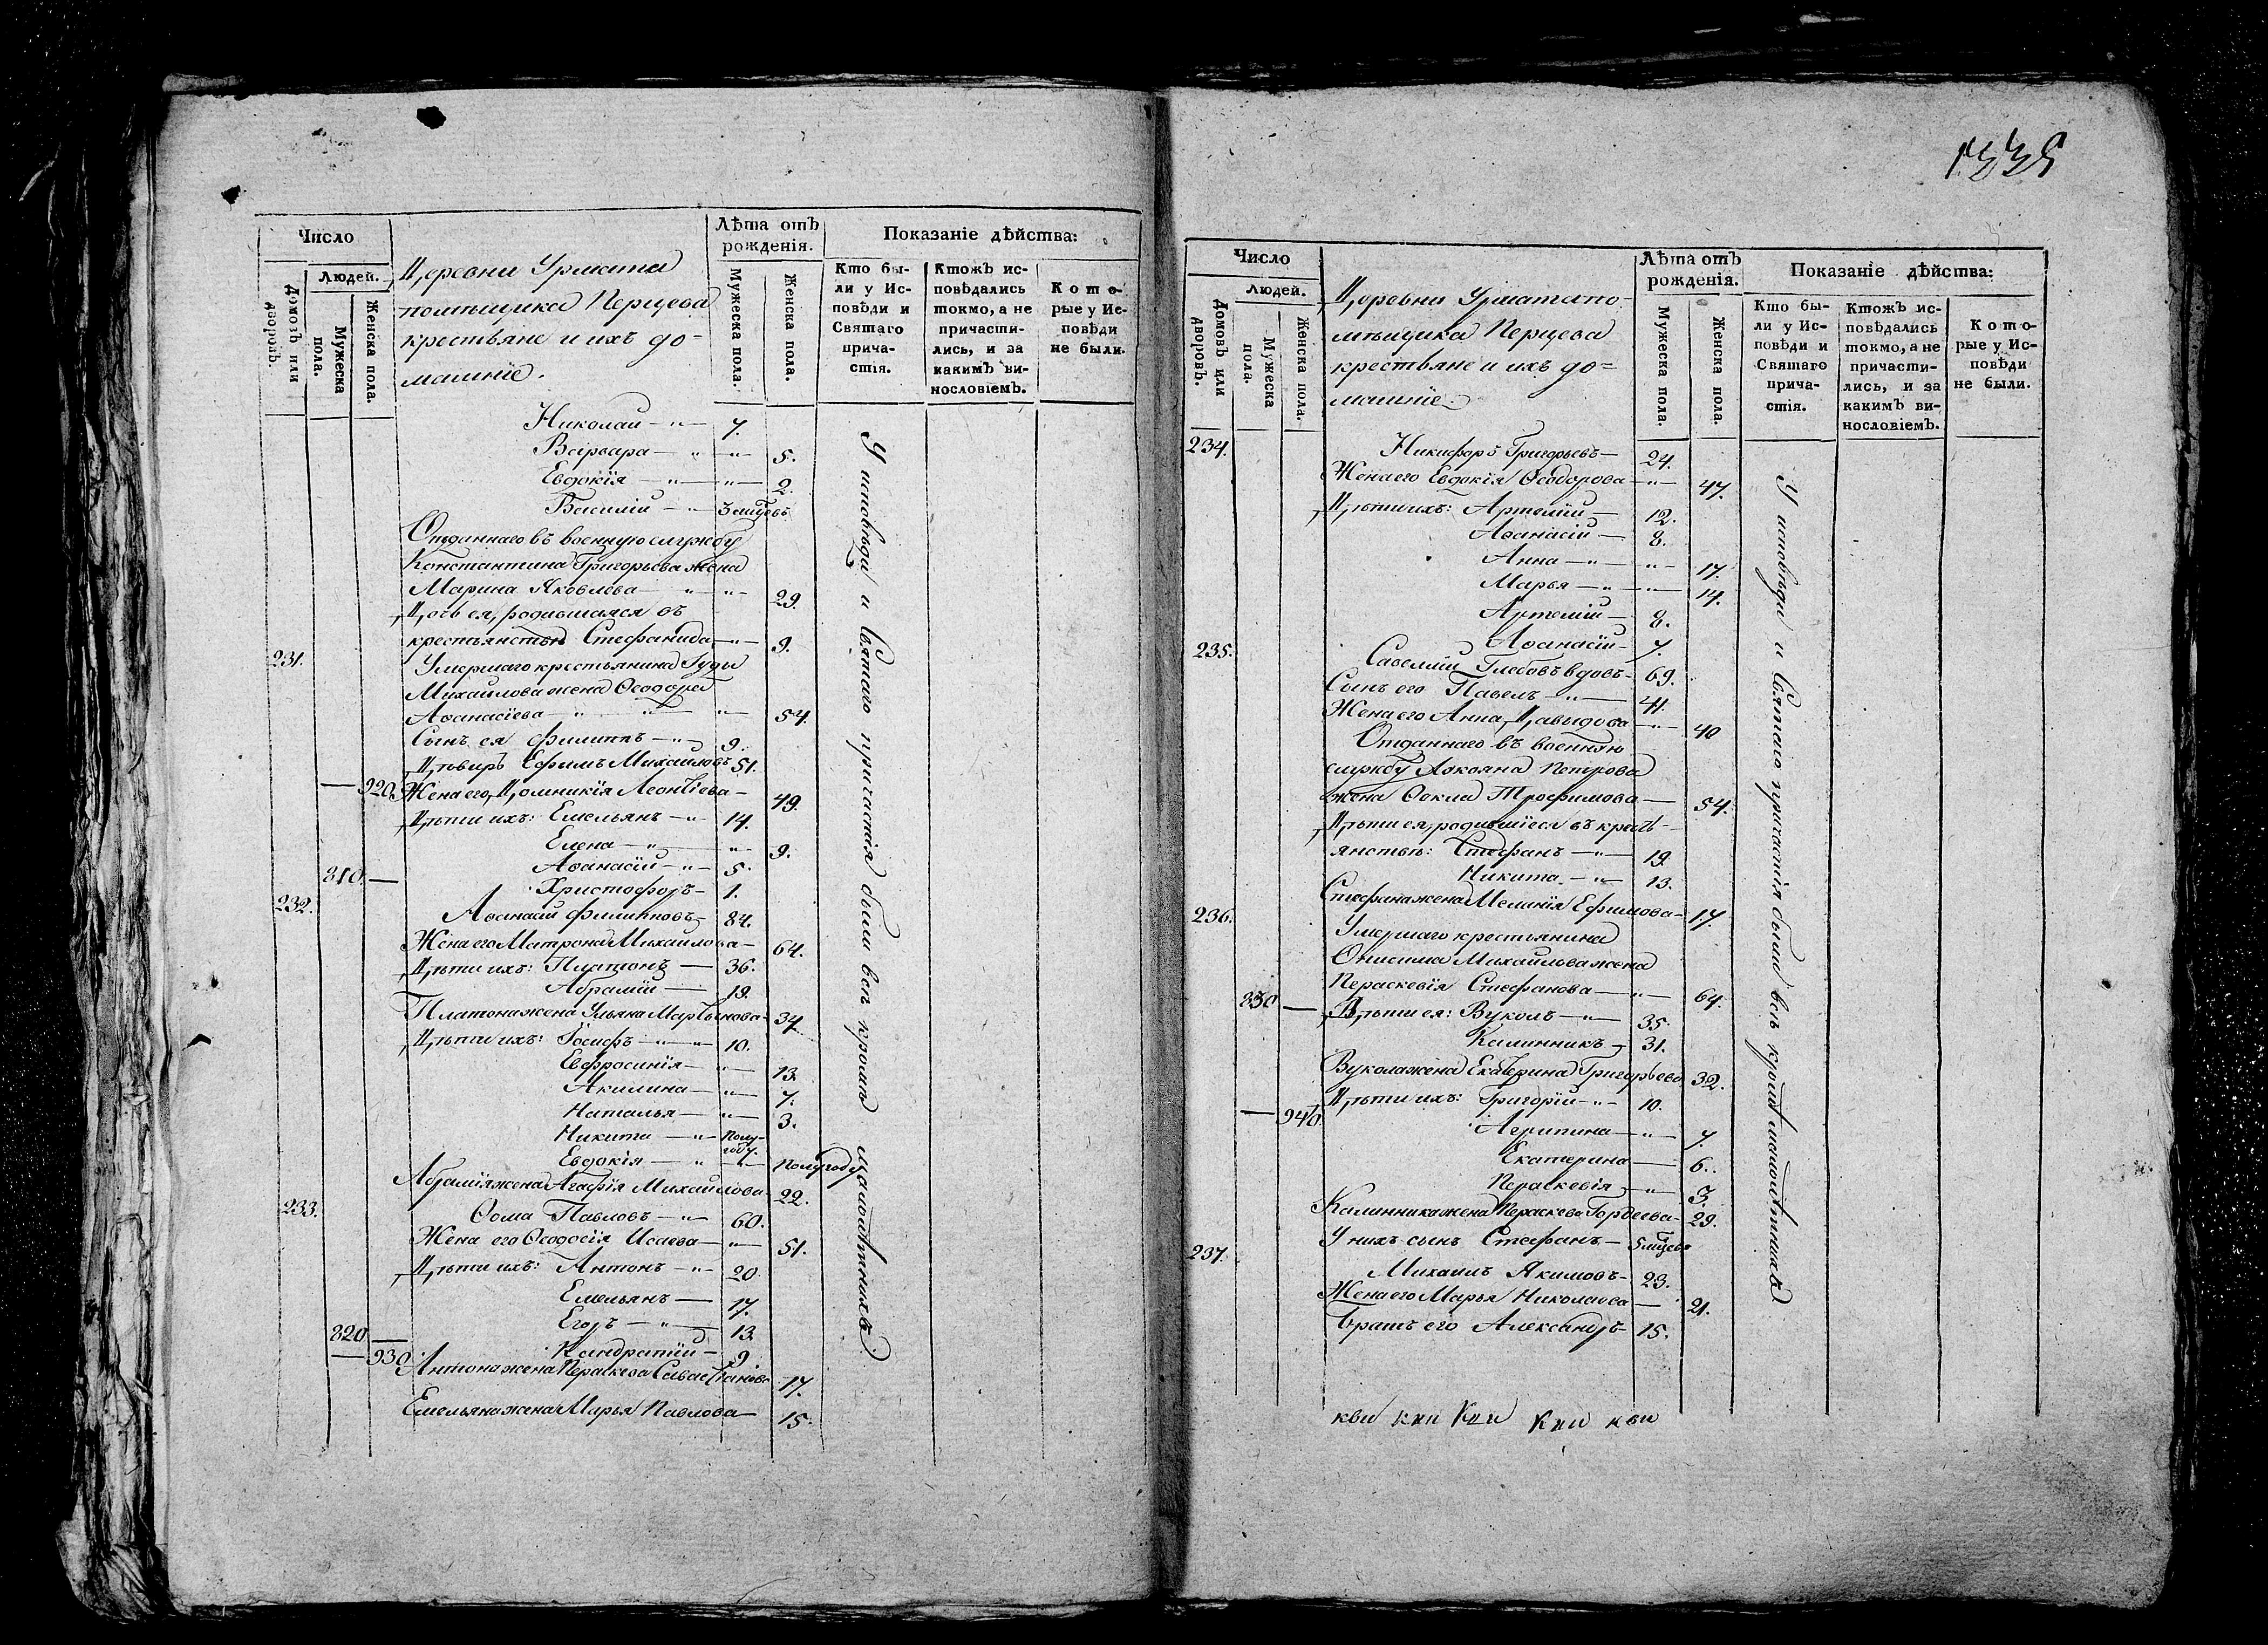 Число
Людей.
Домовъ или дворовъ.
Мужеска пола.
Женска пола.
Деревни Урмата
помѣщика Перцева
крестьяне и ихъ до-
машніе.
Лѣта отъ рожденія.
Мужеска пола.
Женска пола.
Показаніе дѣйства:
Кто бы-
ли у Ис-
повѣди и
Святаго
прича-
стія.
Ктожъ ис-
повѣдались
токмо, а не
причасти-
лись, и за
какимъ ви-
нословіемъ.
Кото-
рые у Ис-
повѣди
не были.
Николай — " — 7.
Варвара — " — " — 5.
Евдокія — " — " — 2.
Василій — " — 3 мцовъ
Отданнаго въ военную службу
Константина Григорьева жена
Марина Яковлева — " — " — 29.
Дочь ея, родившаяся въ
крестьянствѣ Стефанида — " — 9.
231. Умершаго крестьянина Гуды
Михайлова жена Ѳеодора
Аѳанасіева — " — " — " — 54.
Сынъ ея Филиппъ — " — 9.
Дѣверь Ефимъ Михайловъ 51.
— 920. Жена его Домникія Леонтіева — 49.
Дѣти ихъ: Емельянъ — " — 14.
Елена — " — " — 9.
Аѳанасій — " — 5.
810. — Христофоръ — 1.
232. Аѳанасій Филипповъ — 84.
Жена его Матрона Михайлова — 64.
Дѣти ихъ: Платонъ — 36.
Абрамій — 19.
Платона жена Ульяна Мартынова — 34.
Дѣти ихъ: Іосифъ — " — " — 10.
Евфросинія — " — 13.
Акилина — " — 7.
Наталья — " — 3.
Никита — " — Полу-
году.
Евдокія — " — " — Полугоду
Абрамія жена Агафія Михайлова — 22.
233. Ѳома Павловъ — " — 60.
Жена его Ѳеодосія Исаева — " — 51.
Дѣти ихъ: Антонъ — " — 20.
Емельянъ — 17.
Егоръ — " — 13.
820 — Кандратій — 9.
— 930. Антона жена Пераскева Савастіанова 17.
Емельяна жена Марья Павлова — 15.
У исповѣди и Святаго причастія были всѣ кромѣ малолѣтнихъ
Число
Людей.
Домовъ или дворовъ.
Мужеска пола.
Женска пола.
Деревни Урмата по-
мѣщика Перцева
крестьяне и ихъ до=
машніе.
Лѣта отъ рожденія.
Мужеска пола.
Женска пола.
Показаніе дѣйства:
Кто бы-
ли у Ис-
повѣди и
Святаго
прича-
стія.
Ктожъ ис-
повѣдались
токмо, а не
причасти-
лись, и за
какимъ ви-
нословіемъ.
Кото-
рые у Ис-
повѣди
не были.
234. Никифоръ Григорьевъ — 24.
Жена его Евдокія Ѳеодорова — " — 47.
Дѣти ихъ: Артемій — 12.
Аѳанасій — 8.
Анна — " — " — 17.
Марья — " — " — 14.
Артемій — 8.
Аѳанасій — 7.
235. Савелій Глебовъ вдовъ — 69.
Сынъ его Павелъ — " — 41.
Жена его Анна Давыдова — " — 40
Отданнаго въ военную
службу Лукояна Петрова
жена Ѳекла Трофимова — 54.
Дѣти ея, родившіеся въ кресть-
янствѣ: Стефанъ — " — 19.
Никита — " — 13.
Стефана жена Меланія Ефимова — 17.
236. Умершаго крестьянина
Онисима Михайлова жена
Пераскевія Стефанова — " — 64.
830 — Дѣти ея: Вуколъ — " — 35.
Калинникъ — 31.
Вукола жена Екатерина Григорьева 32.
Дѣти ихъ: Григорій — " — 10.
— 940. Агрипина — " — 7.
Екатерина — 6.
Пераскевія — " — 3.
Калинника жена Пераскева Гордеева — 29.
У нихъ сынъ Стефанъ — 5 мцовъ
237. Михаилъ Якимовъ — 23.
Жена его Марья Николаева — 21.
Братъ его Александръ — 15.
У исповѣди и Святаго причастія были всѣ кромѣ малолѣтнихъ